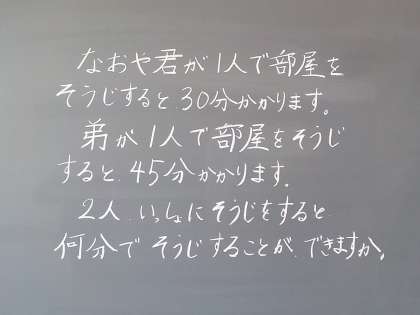 なおや君が1人で部屋を
そうじすると30分かかります。
弟が1人で部屋をそうじ
すると、45分かかります。
2人いっしょにそうじをすると
何分でそうじすることが、できますか。